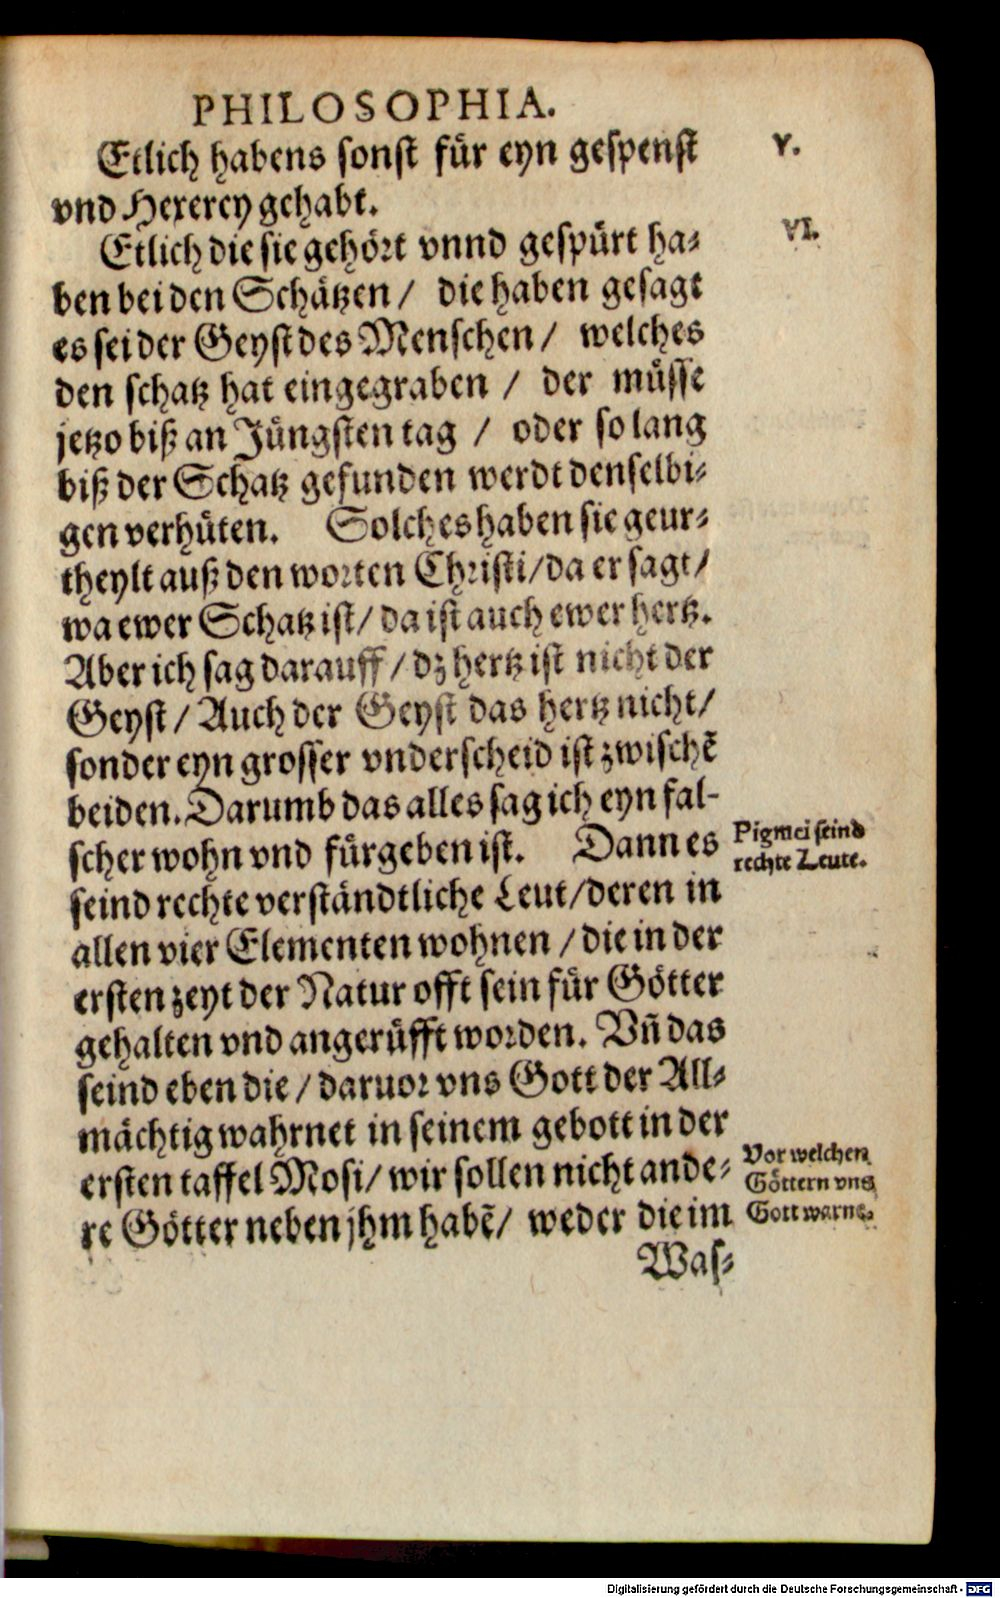 PHILOSOPHIA.
Etlich habens sonst für eyn gespenst
V.
vnd Hexerey gehabt.
Etlich die sie gehört vnnd gespürt ha⸗
VI.
ben bei den Schätzen / die haben gesagt
es sei der Geyst des Menschen / welches
den schatz hat eingegraben / der müsse
jetzo biß an Jüngsten tag / oder so lang
biß der Schatz gefunden werdt denselbi⸗
gen verhüten. Solches haben sie geur⸗
theylt auß den worten Christi/ da er sagt/
wa ewer Schatz ist/ da ist auch ewer hertz.
Aber ich sag darauff / dz hertz ist nicht der
Geyst / Auch der Geyst das hertz nicht/
sonder eyn grosser vnderscheid ist zwischē
beiden. Darumb das alles sag ich eyn fal-
scher wohn vnd fürgeben ist. Dann es
Pigmei seind
rechte Leute.
seind rechte verständtliche Leut/deren in
allen vier Elementen wohnen / die in der
ersten zeyt der Natur offt sein für Götter
gehalten vnd angerüfft worden. Vñ das
seind eben die / daruor vns Gott der All⸗
mächtig wahrnet in seinem gebott in der
ersten taffel Mosi/ wir sollen nicht ande⸗
Vor welchen
Göttern vns
Gott warne.
re Götter neben jhm habē/ weder die im
Was⸗
Digitalisierung gefördert durch die Deutsche Forschungsgemeinschaft - DFG